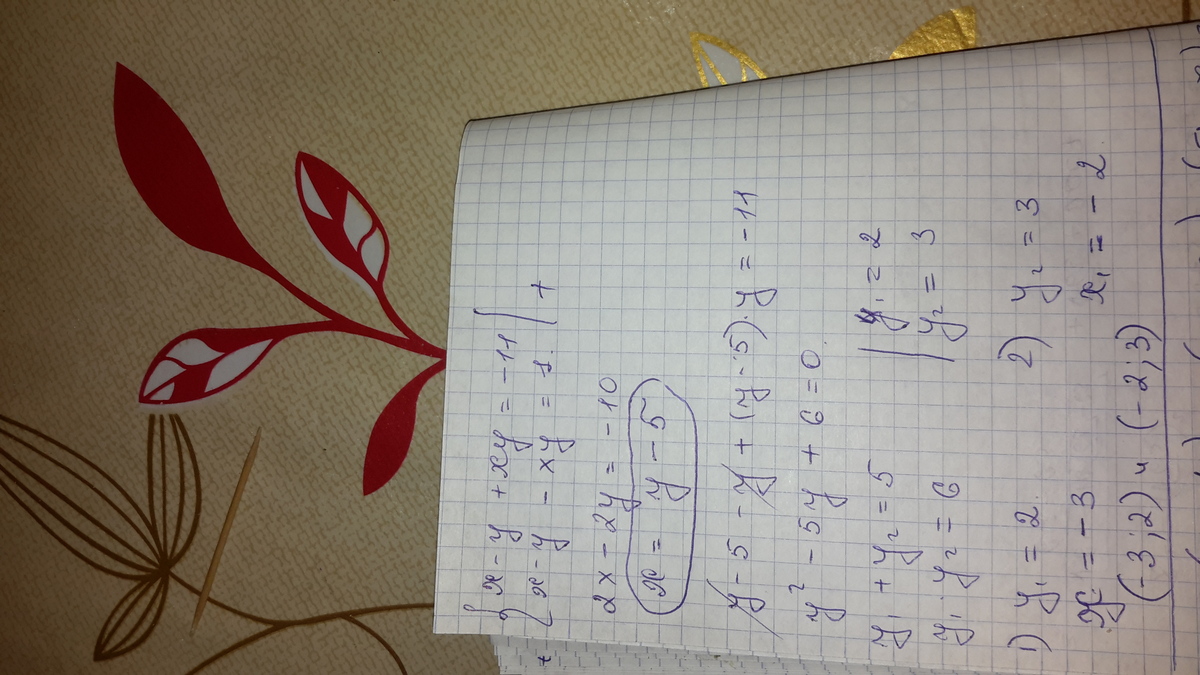 { x - y + xy = -11 |
{ x - y - xy = 1. | +
2x - 2y = -10
x = y - 5
y - 5 - y + (y - 5) · y = -11
y² - 5y + 6 = 0
y₁ + y₂ = 5 | y₁ = 2
y₁ · y₂ = 6 | y₂ = 3
1) y₁ = 2 2) y₂ = 3
x = -3 x₁ = -2
(-3; 2) и (-2; 3)